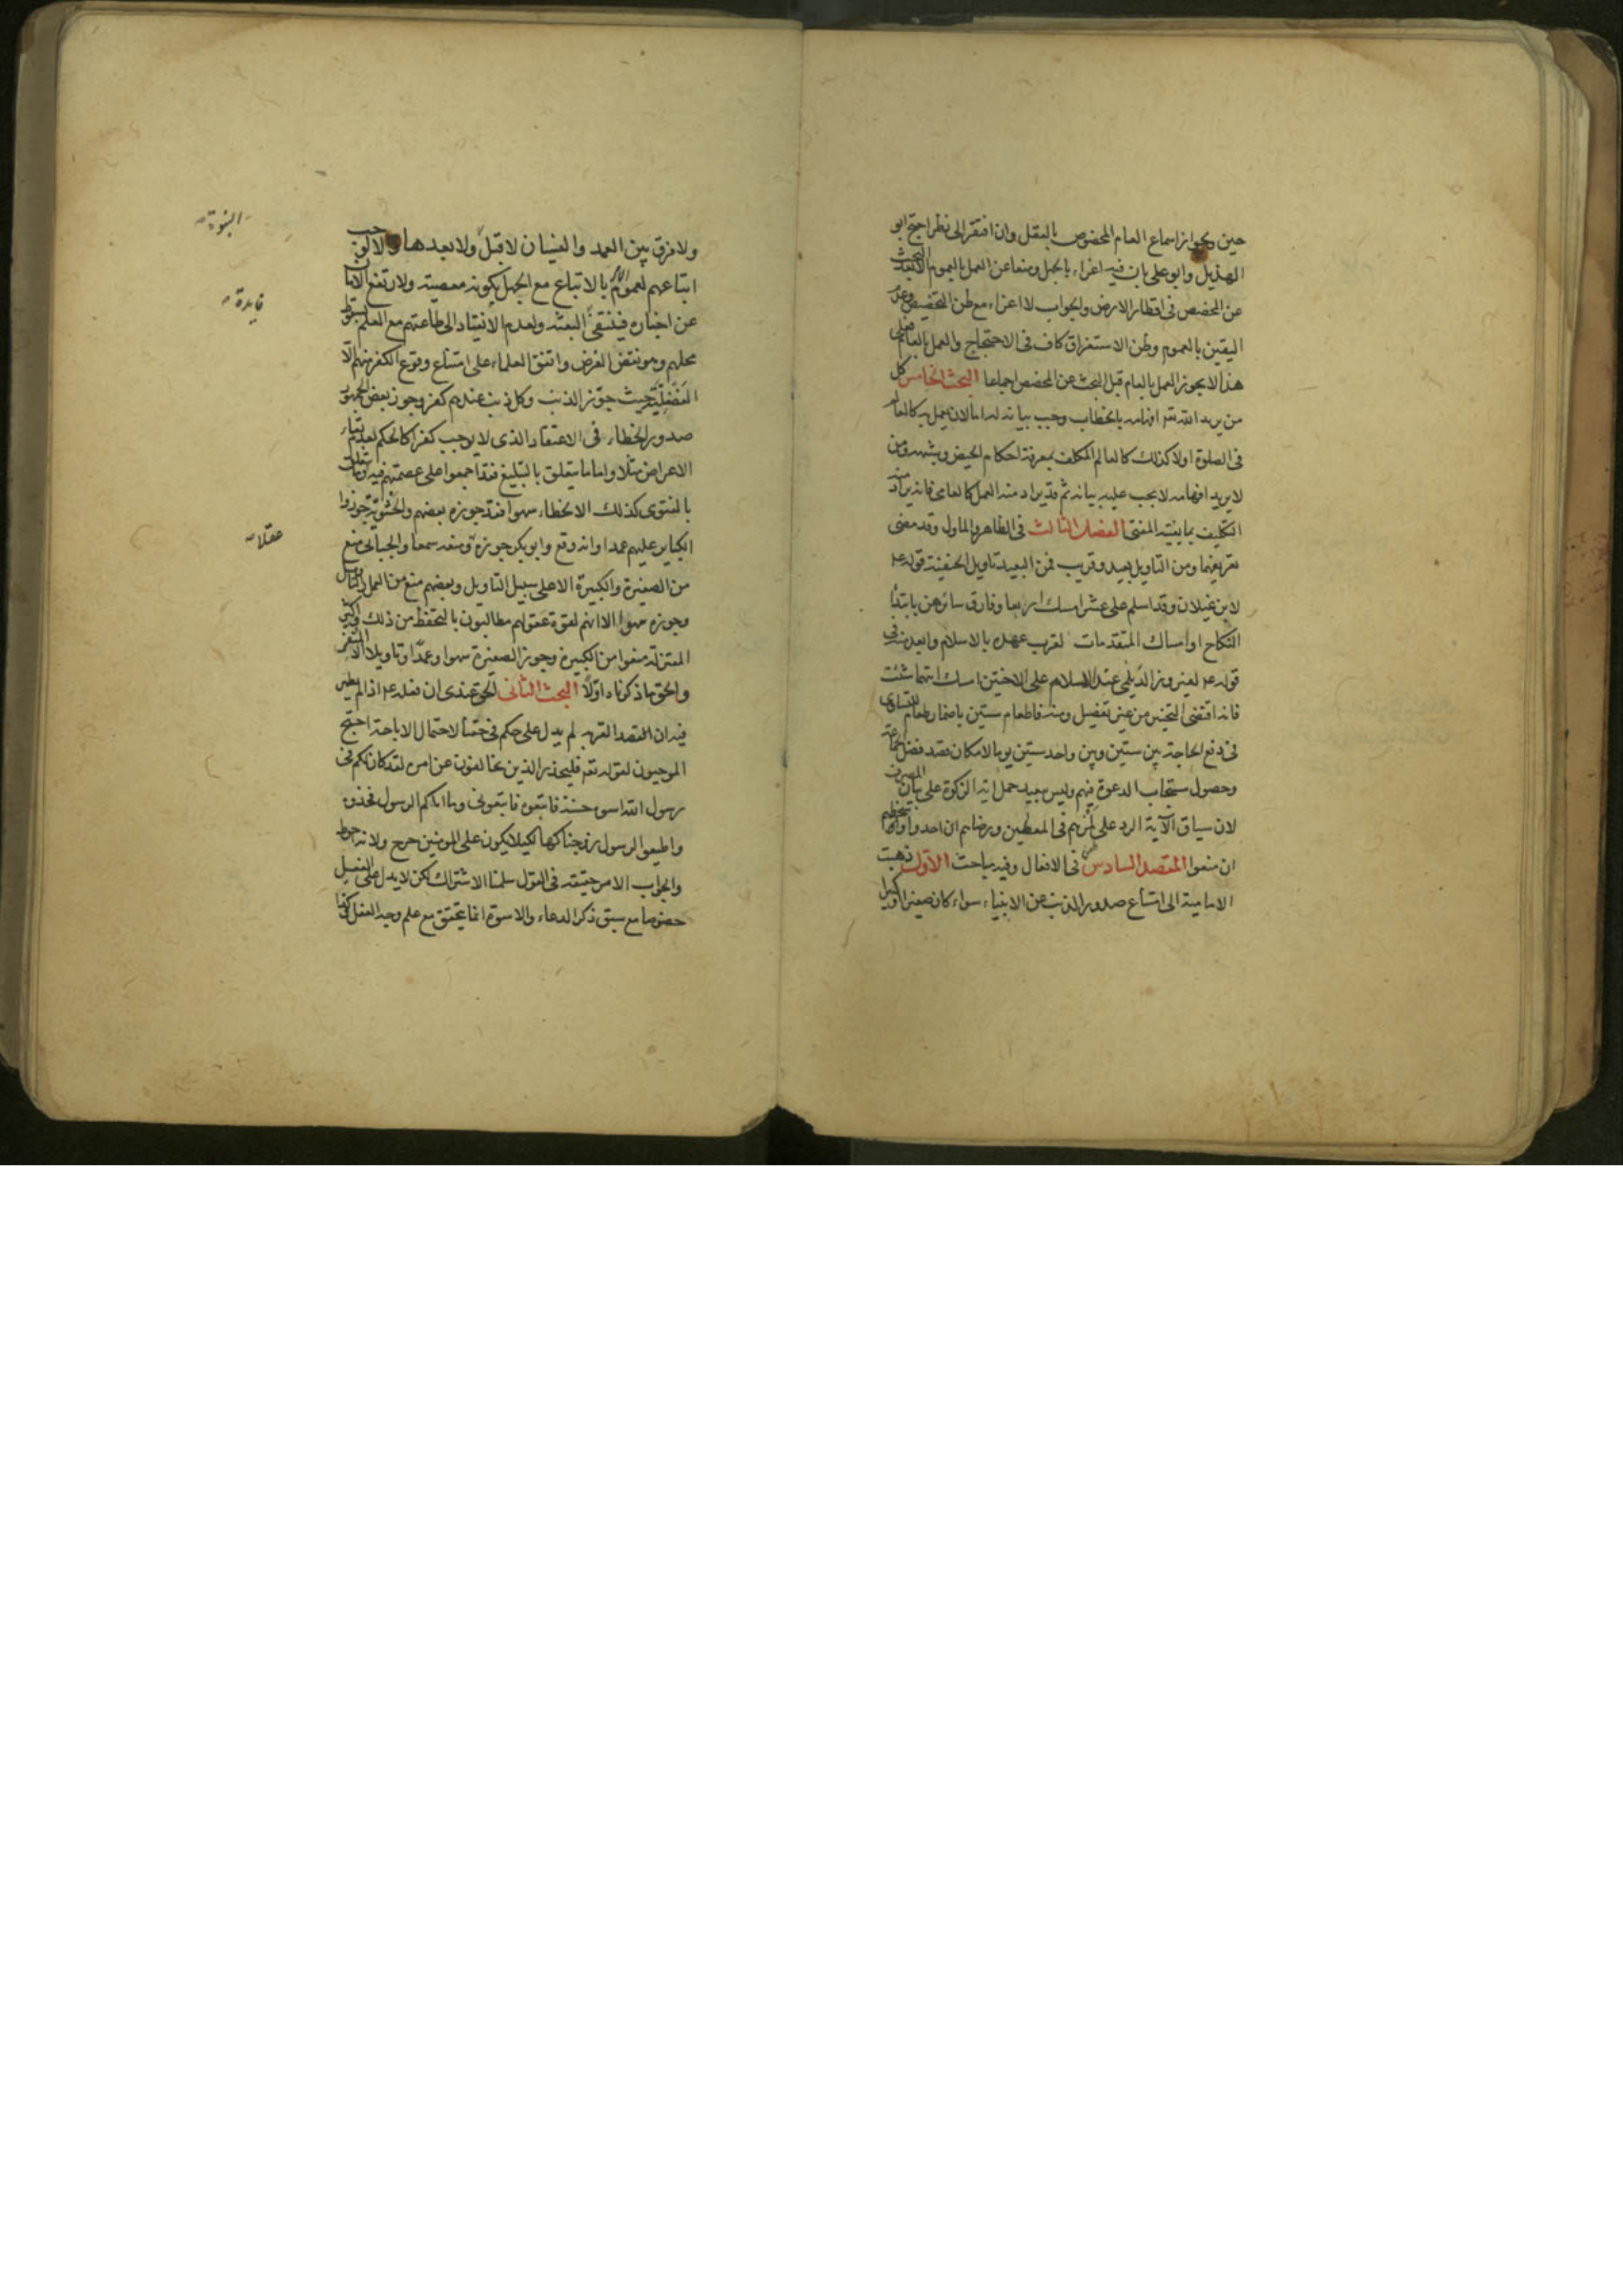 حين يجواز اسماع العام المخصوص بالعقل وان افتقر الى نظر احتج ابو
الهذيل وابو علي بان فيه اغراء بالجهل ومنعا عن العمل بالعموم الا بعد البحث
عن المخصص في اقطار الارض والجواب لا اغراء مع ظن التخصيص وعدم
اليقين بالعموم وظن الاستغراق كاف في الاحتجاج والعمل بالعام فعلى
هذا لا يجوز العمل بالعام قبل البحث عن المخصص اجماعا البحث الخامس كل
من يريد الله تع افهامه بالخطاب وجب بيانه له اما لان يعمل به كالعالم
في الصلوة اولا كذلك كالعالم المكلف بمعرفة احكام الحيض وشبهه ومن
لا يريد افهامه لا يجب عليه بيانه ثم قد يراد منه العمل كالعامي فانه يراد منه
التكليف بما يفتيه المفتي الفصل الثالث في الظاهر والماول وقد مضى
تعريفهما ومن التاويل بعيد وقريب فمن البعيد تاويل الحنفية قوله ع
لابن غيلان وقد اسلم على عشر امسك اربعا وفارق سائرهن بابتداء
النكاح او امساك المتقدمات لقرب عهده بالاسلام وابعد منه في
قوله ع لفيروز الديلمي عند الاسلام على الاختين امسك ايتهما شئت
فانه اقتضى التخيير من غير تفصيل ومنه فاطعام ستين باضمار طعام لتساوى
في دفع الحاجة بين ستين وبين واحد ستين يوما لامكان قصد فضل الجماعة
وحصول مستجاب الدعوة فيهم وليس ببعيد حمل اية الزكوة على بيان المصرف
لان سياق الآية الرد على لمزهم في المعطين ورضاهم ان اخذوا وسخطهم
ان منعوا المقصد السادس في الافعال وفيه مباحث الاول ذهبت
الامامية الى امتناع صدور الذنب عن الانبياء سواء كان صغيرا او كبيرا
النبوة
ولا فرق بين العمد والنسيان لا قبل ولا بعدها والا لوجب
اتباعهم لعموم الامر بالاتباع مع الجهل بكونه معصية ولارتفع الامان
فايدة
عن اخباره فينتفي البعثة ولعدم الانقياد الى طاعتهم مع العلم بسقوط
محلهم وهو نقض الغرض واتفق العلماء على امتناع وقوع الكفر منهم الا
الفضيلية حيث جوز الذنب وكل ذنب عندهم كفر وجوز بعض الجمهور
صدور الخطاء في الاعتقاد الذي لا يوجب كفرا كالحكم بعدم بقاء
الاعراض مثلا واما ما يتعلق بالتبليغ فقد اجمعوا على عصمتهم فيه وما يتعلق
بالفتوى كذلك الا الخطاء سهوا فقد جوزه بعضهم والحشوية جوزوا
عقلا
الكباير عليهم عمدا وانه وقع وابو بكر جوزه ومنعه سمعا والجبائي منع
من الصغيرة والكبيرة الا على سبيل التاويل وبعضهم منع من العمل والتاويل
وجوزه سهوا الا انهم لقوة عقولهم مطالبون بالتحفظ من ذلك واكثر
المعتزلة منعوا من الكبيرة وجوز الصغيرة سهوا وعمدا وتاويلا الا المنفر
والحق ما ذكرناه اولا البحث الثاني الحق عندي ان فعله ع اذا لم يظهر
فيه ان القصد القربة لم يدل على حكم في حقنا لاحتمال الاباحة احتج
الموجبون لقوله تع فليحذر الذين يخالفون عن امره لقد كان لكم في
رسول الله اسوة حسنة فاتبعوه فاتبعوني وما اتاكم الرسول فخذوه
واطيعوا الرسول زوجناكها لكيلا يكون على المومنين حرج ولانه احوط
والجواب الامر حقيقة في القول سلمنا الاشتراك لكن لا يدل على الفعل
خصوصا مع سبق ذكر الدعاء والاسوة انما يتحقق مع علم وجه الفعل